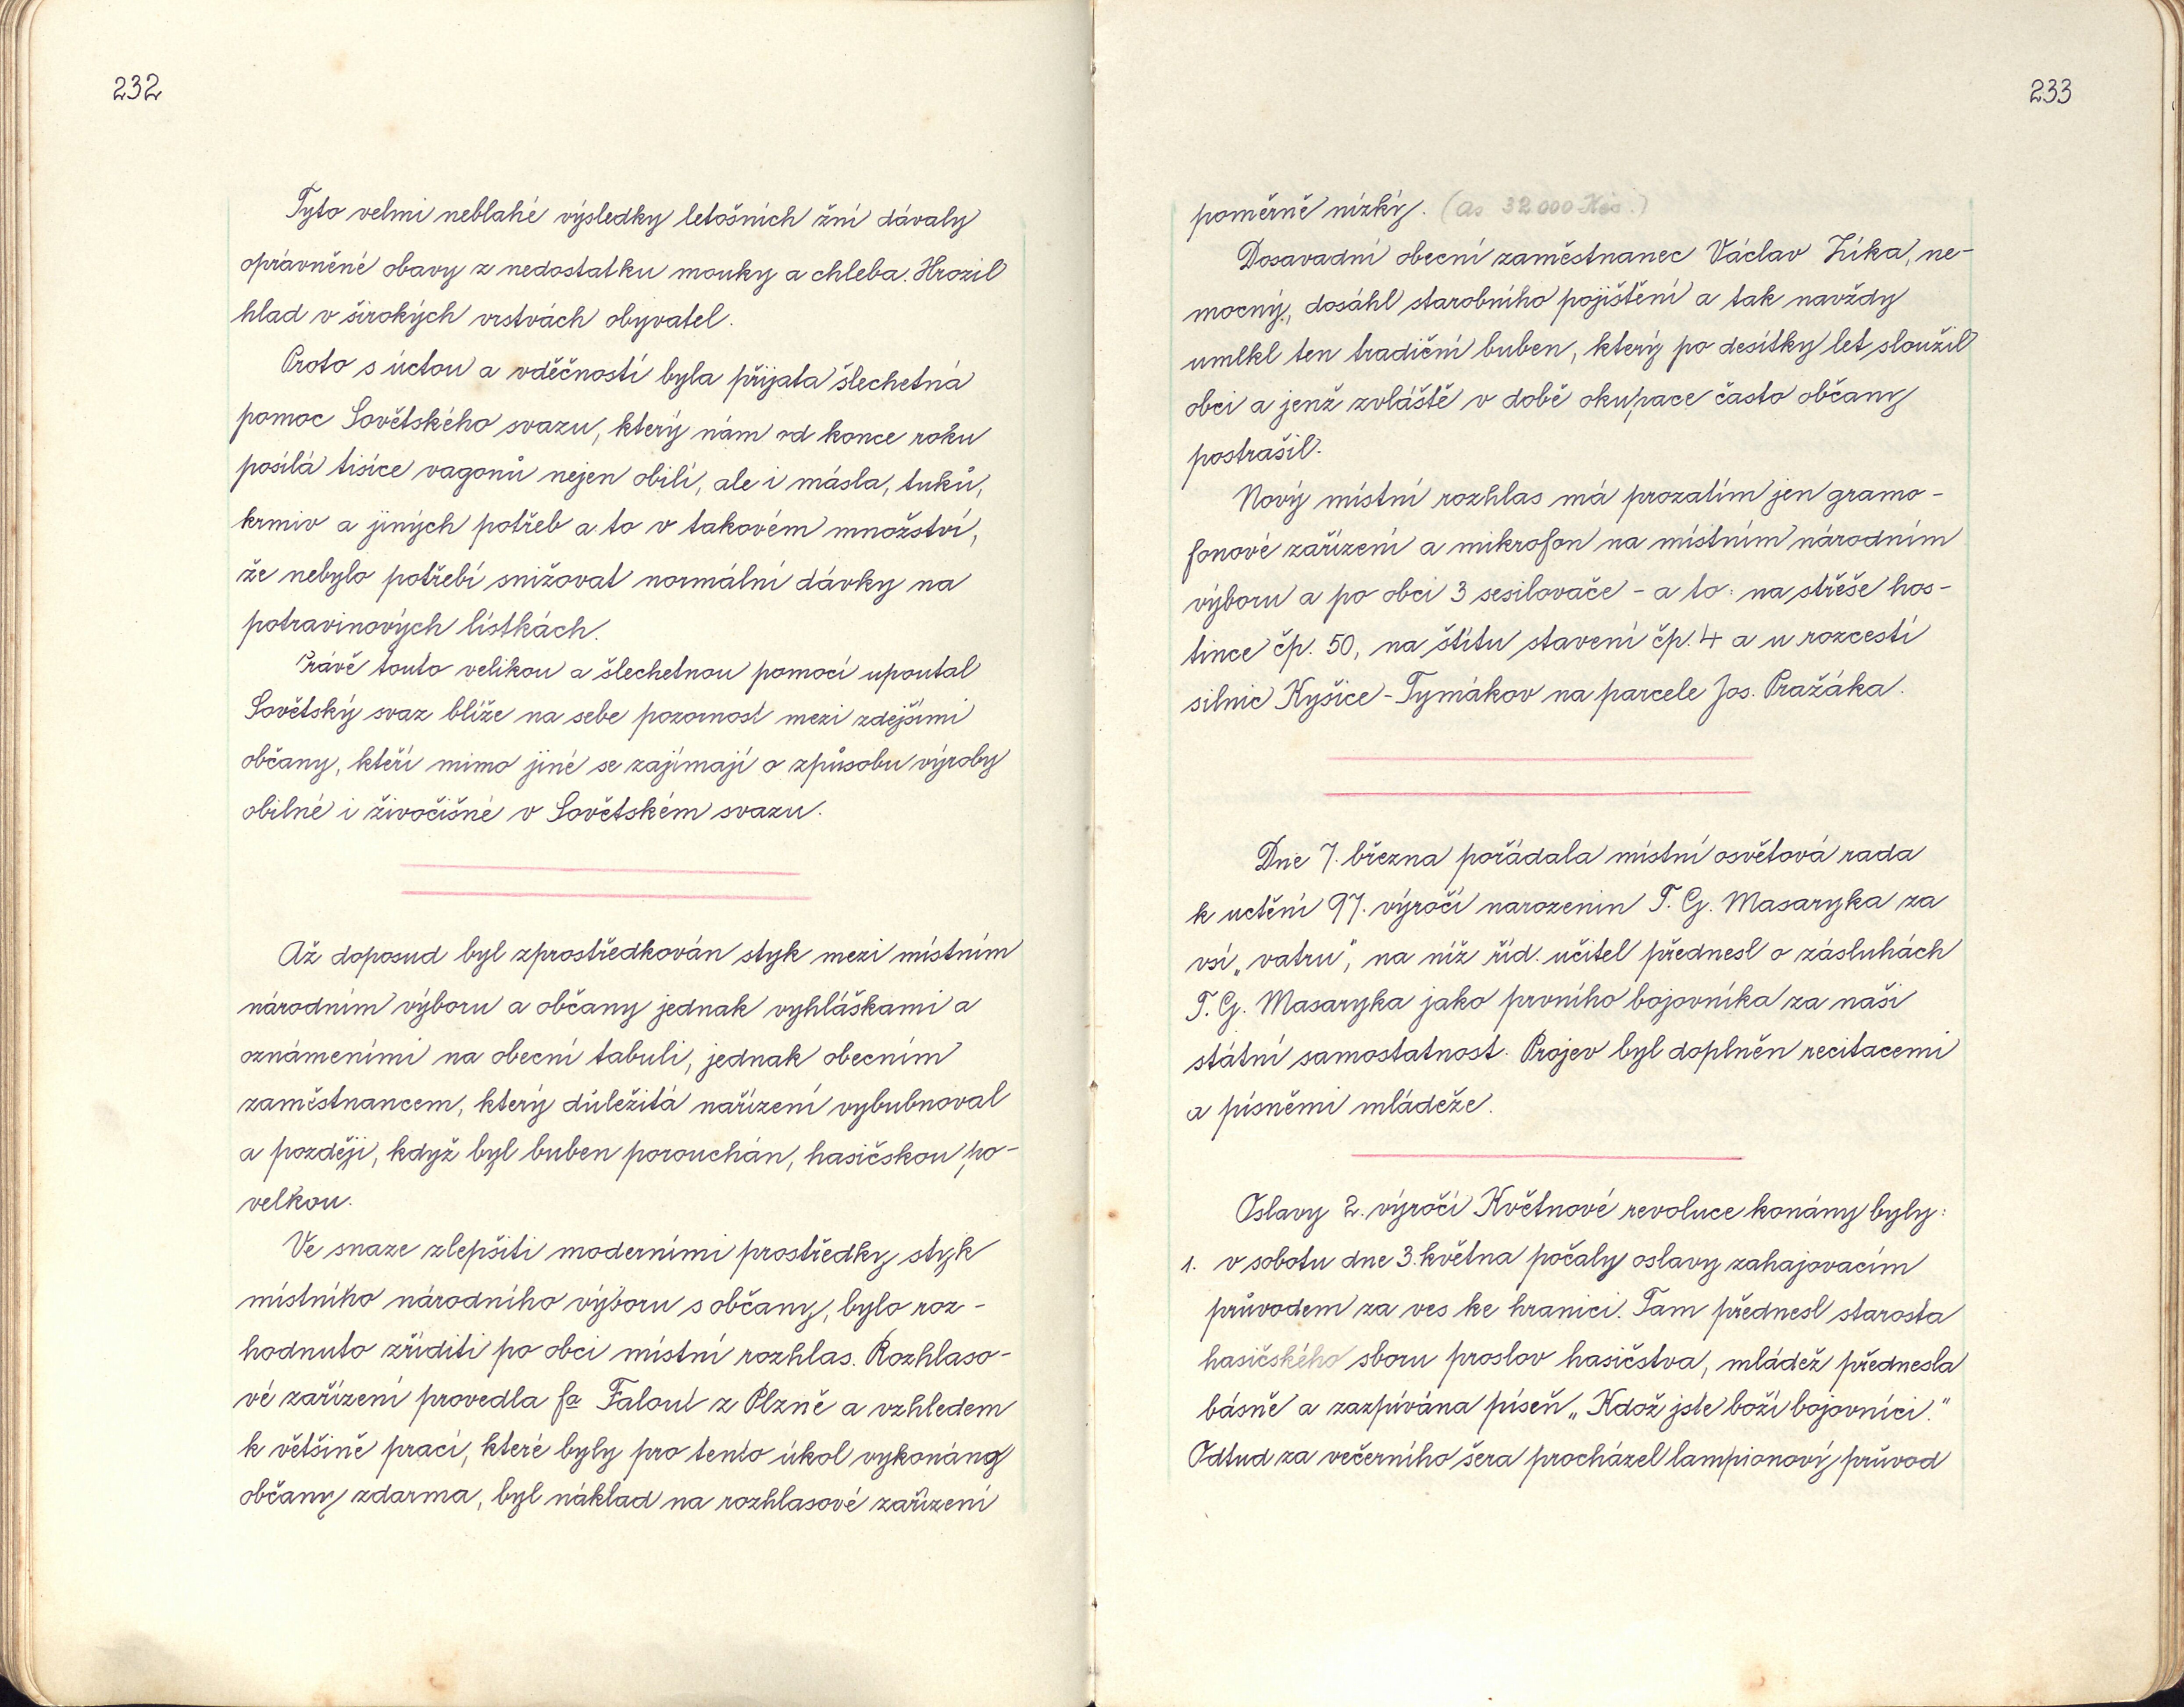 232
Tyto velmi neblahé výsledky letošních žní dávaly
oprávněné obavy z nedostatku mouky a chleba. Hrozil
hlad v širokých vrstvách obyvatel.
Proto s úctou a vděčností byla přijata šlechetná
pomoc Sovětského svazu, který nám od konce roku
posílá tisíce vagonů nejen obilí, ale i másla, tuků,
krmiv a jiných potřeb a to v takovém množství,
že nebylo potřebí snižovat normální dávky na
potravinových lístkách.
Právě touto velikou a šlechetnou pomocí upoutal
Sovětský svaz blíže na sebe pozornost mezi zdejšími
občany, kteří mimo jiné se zajímají o způsobu výroby
obilné i živočišné v Sovětském svazu.
Až doposud byl zprostředkován styk mezi místním
národním výboru a občany jednak vyhláškami a
oznámeními na obecní tabuli, jednak obecním
zaměstnancem, který důležitá nařízení vybubnoval
a později, když byl buben porouchán, hasičskou po-
velkou.
Ve snaze zlepšiti moderními prostředky styk
místního národního výboru s občany, bylo roz-
hodnuto zříditi po obci místní rozhlas. Rozhlaso-
vé zařízení provedla fa Faloul z Plzně a vzhledem
k většině prací, které byly pro tento úkol vykonány
občany zdarma, byl náklad na rozhlasové zařízení
233
poměrně nízký. (as 32 000 Kčs.)
Dosavadní obecní zaměstnanec Václav Zíka, ne-
mocný, dosáhl starobního pojištění a tak navždy
umlkl ten tradiční buben, který po desítky let sloužil
obci a jenž zvláště v době okupace často občany
postrašil.
Nový místní rozhlas má prozatím jen gramo-
fonové zařízení a mikrofon na místním národním
výboru a po obci 3 sesilovače - a to: na střeše hos-
tince čp. 50, na štítu stavení čp. 4 a u rozcestí
silnic Kyšice - Tymákov na parcele Jos. Pražáka.
Dne 7. března pořádala místní osvětová rada
k uctění 97. výročí narozenin T. G. Masaryka za
vsí „vatru“, na níž říd. učitel přednesl o zásluhách
T. G. Masaryka jako prvního bojovníka za naši
státní samostatnost. Projev byl doplněn recitacemi
a písněmi mládeže.
Oslavy 2. výročí Květnové revoluce konány byly:
1. v sobotu dne 3. května počaly oslavy zahajovacím
průvodem za ves ke hranici. Tam přednesl starosta
hasičského sboru proslov hasičstva, mládež přednesla
básně a zazpívána píseň „Kdož jste boží bojovníci.“
Odtud za večerního šera procházel lampionový průvod